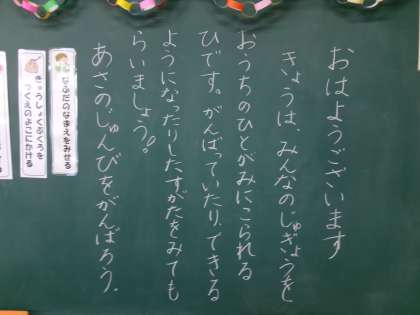 おはようございます
きょうは、みんなのじゅぎょうを
おうちのひとがみにこられる
ひです。がんばっていたり、できる
ようになったりしたすがたをみても
らいましょう。
あさのじゅんびをがんばろう。
なふだのなまえをみせる
きゅうしょくぶくろを
つくえのよこにかける